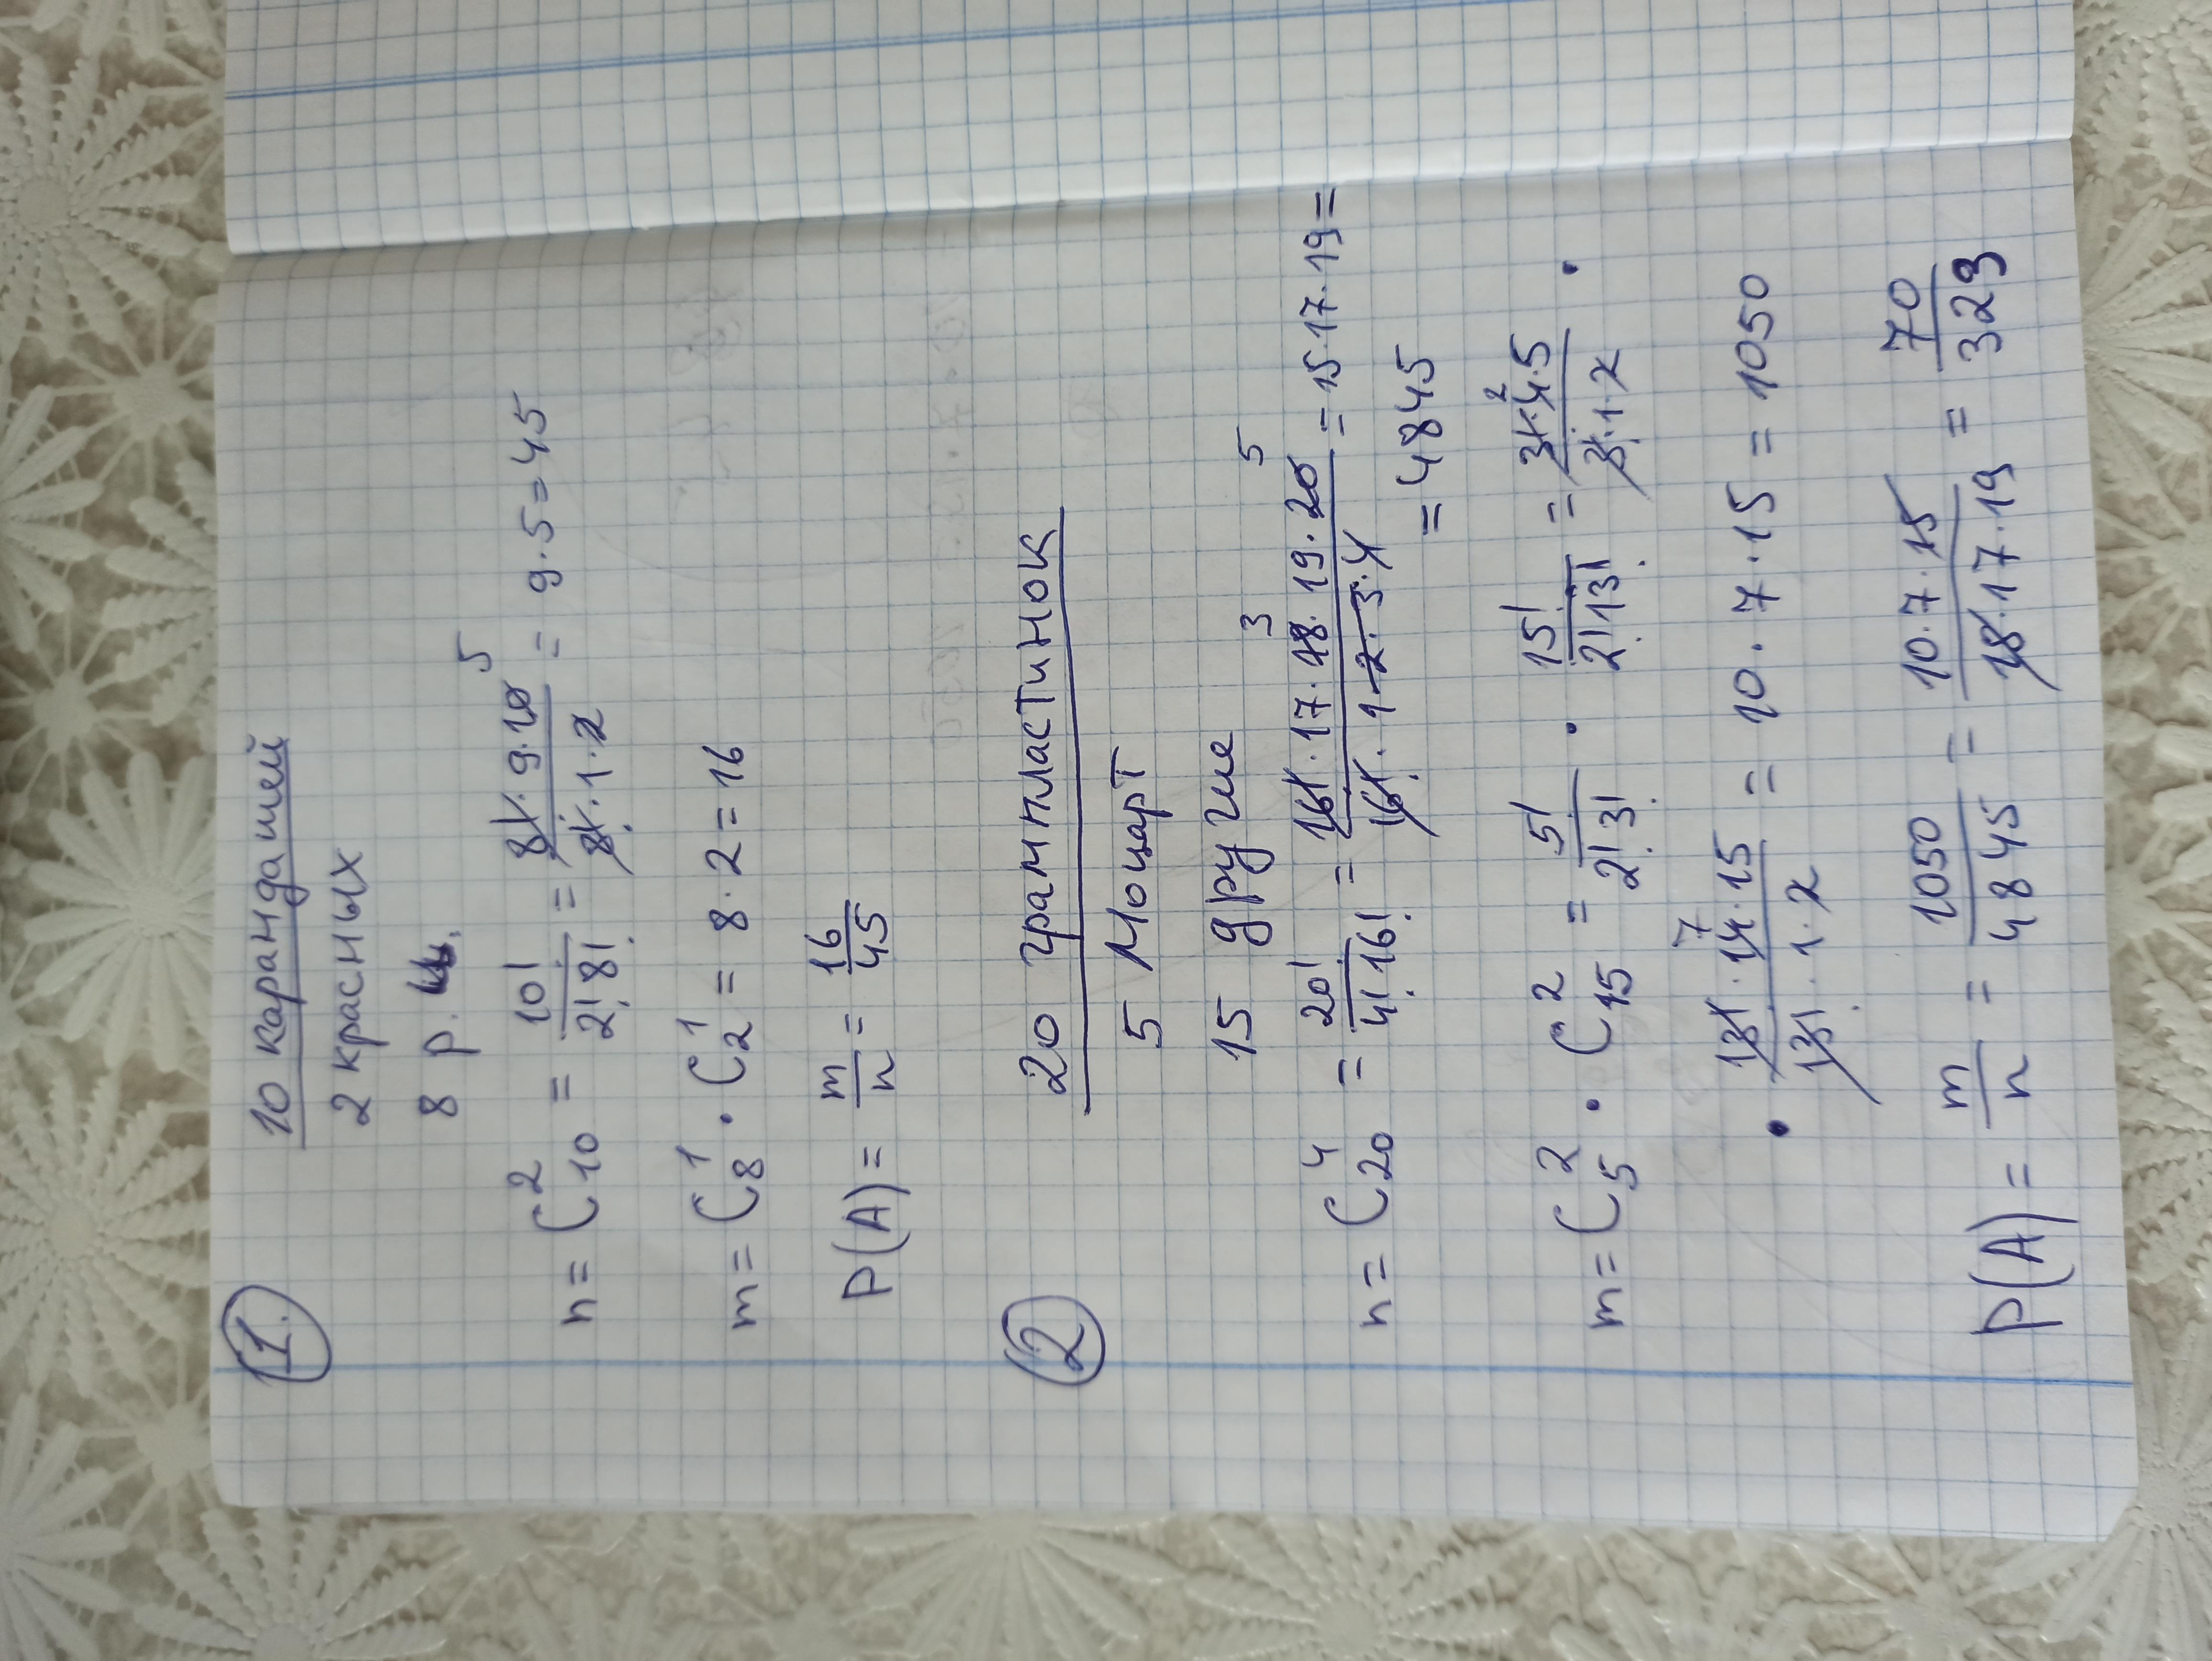 1.
10 карандашей
2 красных
8 р.
n = C₁₀² = 10!/2!8! = 8!·9·10/8!·1·2 5 = 9·5=45
m = C₈¹ · C₂¹ = 8·2=16
P(A) = m/n = 16/45
2
20 грампластинок
5 Моцарт
15 другие
n = C₂₀⁴ = 20!/4!16! = 16!·17·18·19·20/16!·1·2·3·4 3 5 = 15·17·19=
= 4845
m = C₅² · C₁₅² = 5!/2!3! · 15!/2!13! = 3!·4·5/3!·1·2 2 ·
· 13!·14·15/13!·1·2 7 = 10·7·15 = 1050
P(A) = m/n = 1050/4845 = 10·7·15/15·17·19 = 70/323